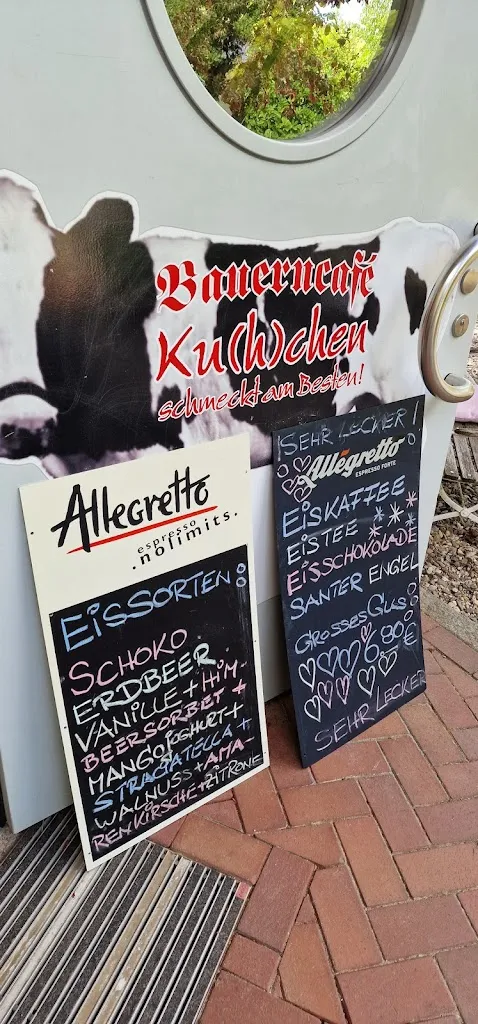 Bauerncafé
Ku(h)chen
schmeckt am Besten!
Allegretto
espresso
.nolimits.
EISSORTEN:
SCHOKO
ERDBEER
VANILLE + HIM-
BEERSORBET +
MANGOJOGHURT +
STRACIATELLA +
WALNUSS + AMA-
RENKIRSCHE + ZITRONE
!SEHR LECKER!
Allegretto
ESPRESSO FORTE
EISKAFFEE
EISTEE
EISSCHOKOLADE
SANTER ENGEL
GROSSES GLAS:
6,80 €
SEHR LECKER